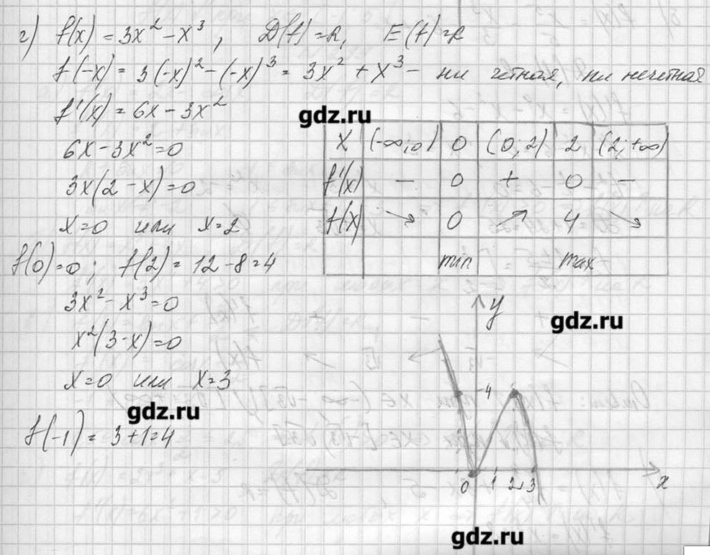 г) f(x) = 3x² - x³, D(f) = R, E(f) = R
f(-x) = 3(-x)² - (-x)³ = 3x² + x³ - ни четная, ни нечетная
f'(x) = 6x - 3x²
gdz.ru
6x - 3x² = 0
3x(2 - x) = 0
x = 0 или x = 2
x (-∞; 0) 0 (0; 2) 2 (2; +∞)
f'(x) - 0 + 0 -
f(x) ↘ 0 ↗ 4 ↘
min max
f(0) = 0; f(2) = 12 - 8 = 4
3x² - x³ = 0
x²(3 - x) = 0
x = 0 или x = 3
gdz.ru
f(-1) = 3 + 1 = 4
y
gdz.ru
4
0 1 2 3 x
gdz.ru